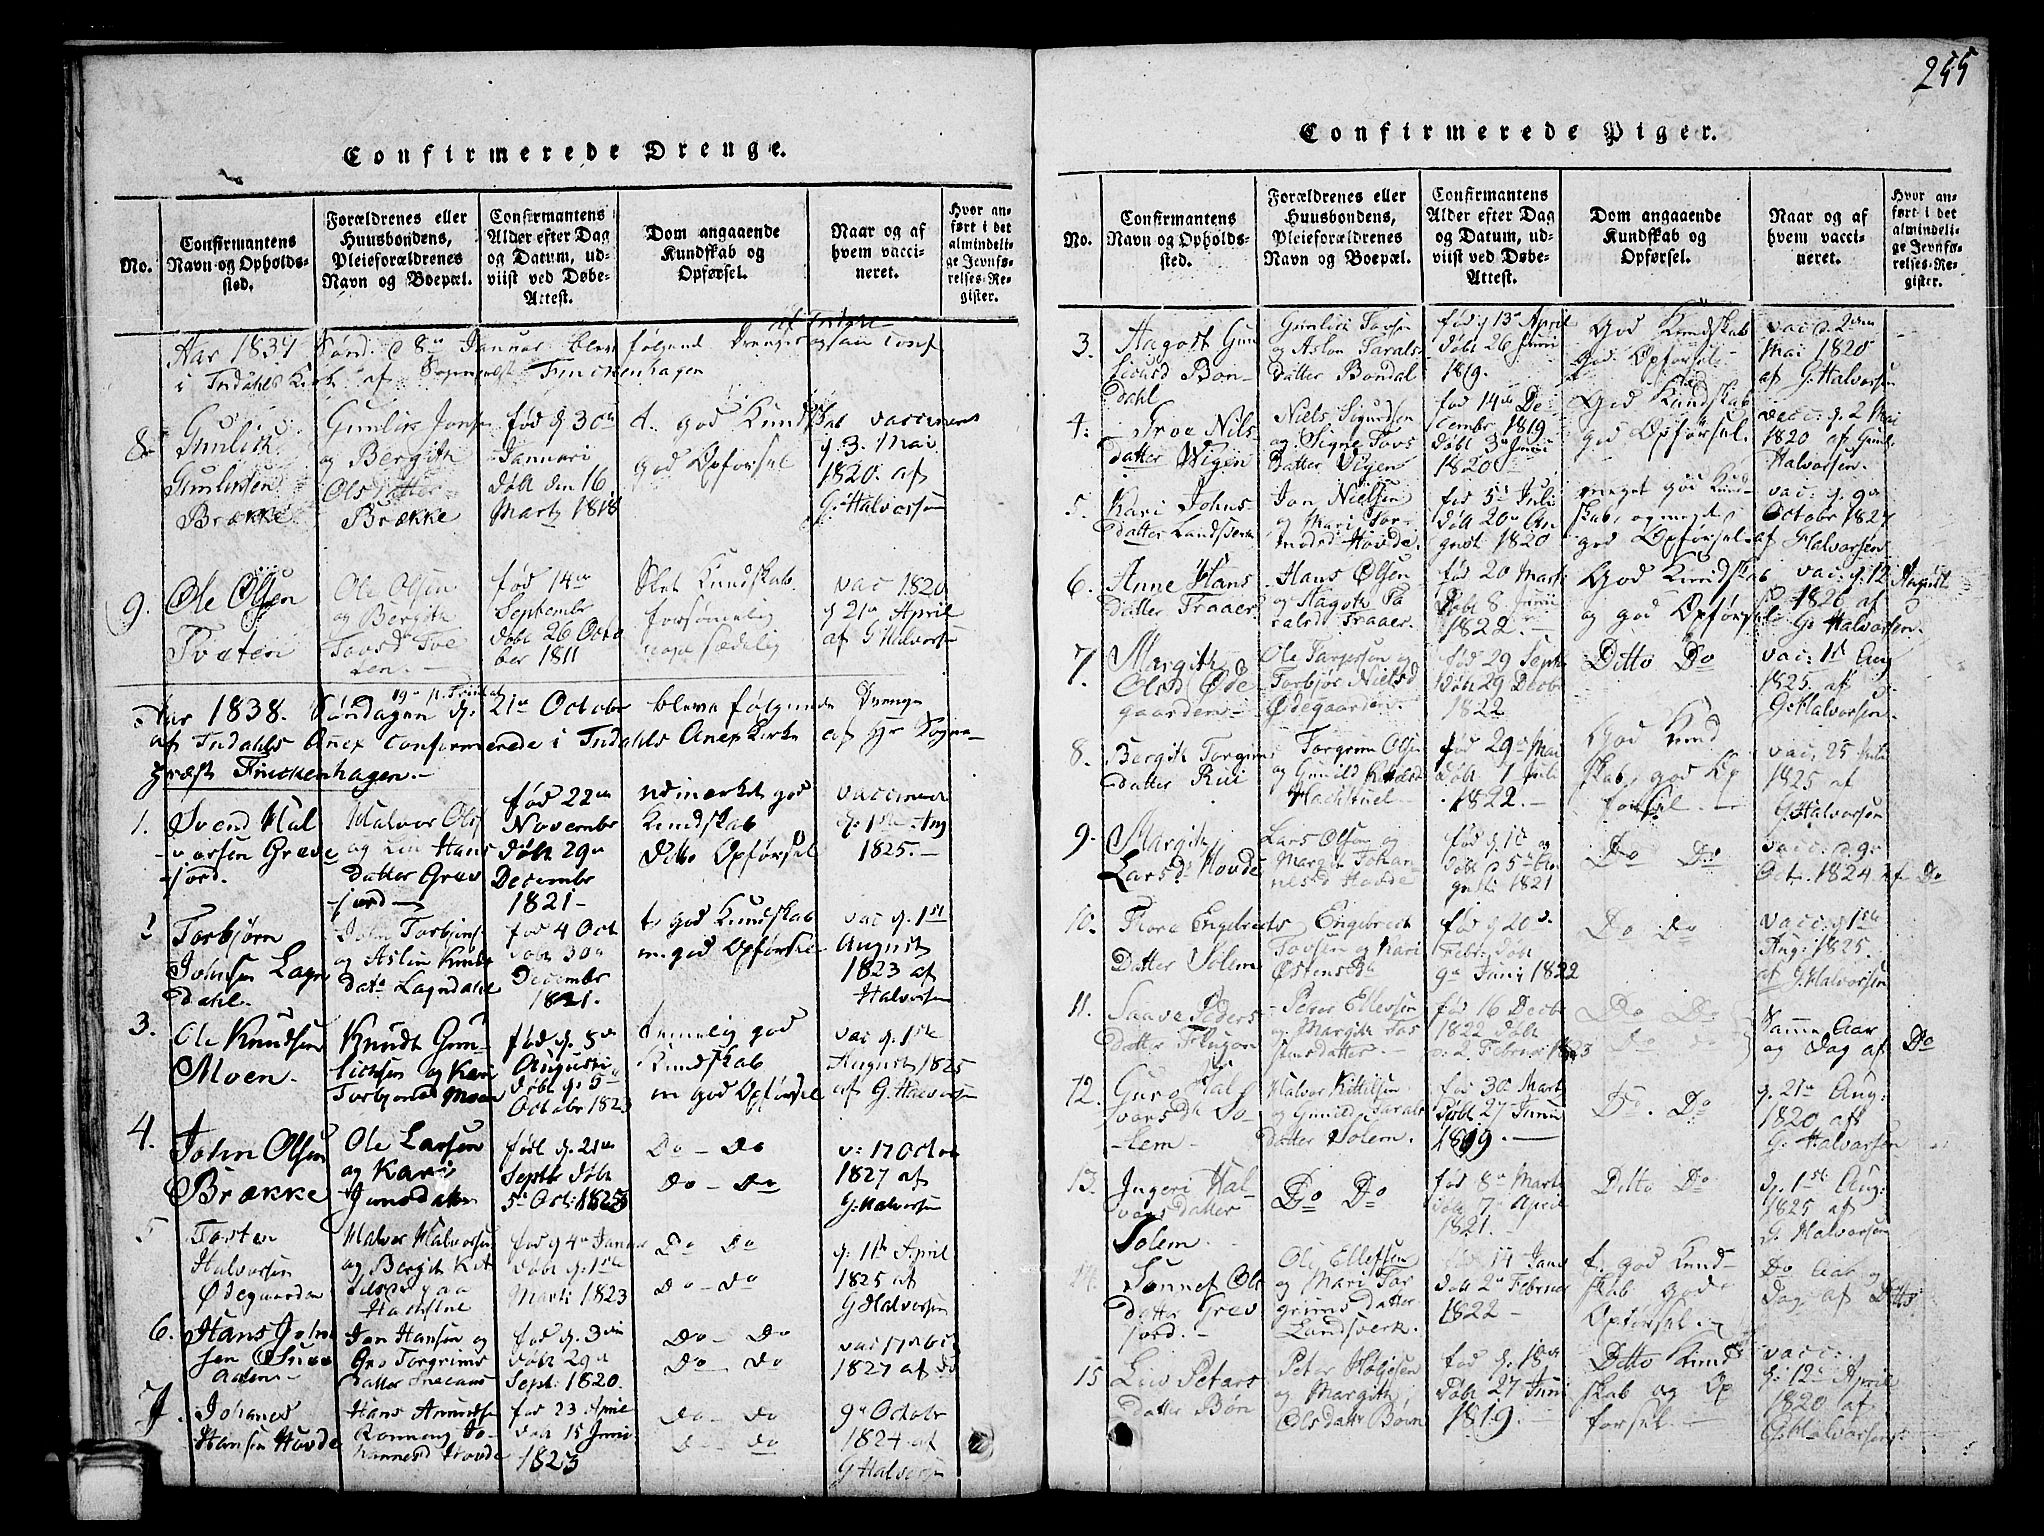 255
Confirmerede Drenge.
No.
Confirmantens
Navn og Opholds-
sted.
Forældrenes eller
Huusbondens,
Pleieforældrenes
Navn og Boepæl.
Confirmantens
Alder efter Dag
og Datum, ud-
viist ved Døbe-
Attest.
Dom angaaende
Kundskab og
Opførsel.
Naar og af
hvem vacci-
neret.
Hvor an-
ført i det
almindeli-
ge Jevnfø-
relses-Re-
gister.
i Indahls Kirk af Finckenhagen
8
Gunlich
Gunlichsen
Brække
Gunlich Jons
og Bergith
Olsdatter
Brække
fød d. 30te
Januari
døbt den 16
Marts 1818
t. god Kundskab
god Opførsel
vaccineret
d. 3. Mai
1820. af
G. Halvorsen
9.
Ole Olsen
Tveten
Ole Olsen
og Bergith
Tovsdr Tve
ten. -
fød 14de
September
døbt 26 Octo
ber 1811
Slet Kundskab
forsømelig
sædelig
vac 1820
d 21de April
af G Halvorsen
Aar 1838. Søndagen d. 21de Octobr bleve følgende Drenge
af Indahls Anex Confirmerede i Indahls Anex Kirke af Hr Sogne-
præst Finckenhagen. -
1.
Svend Hal
vorsen Greve
fjord.
Halvor Ols
og Liv Hans
datter Grev
fjord
fød 22de
Novembr
døbt 29de
Decembr
1821 -
udmærket god
Kundskab
Ditto Opførsel
vaccineret
d. 1ste Aug
1825. -
Torbjørn
Johnsen Lagn
dahl.
John Torbjøns
og Aslou Knuds
datr Lagndahl
fød 4 Oct
døbt 30de
Decembr
1821.
t. god Kundskab
m. god Opførsel
vac d. 1ste
August
1823 af
Halvorsen
3.
Ole Knudsen
Moen.
Knudt Gun-
lichsen og Kari
Torbjønsd Moen
fød d. 8de
Augusti
døbt d. 5te
Octobr 1823
temelig god
Kundskab
m god Opførsel
vac d. 1ste
August 1825
af G. Halvorsen
4.
John Olsen
Brække
Ole Larsen
og Kari
Jonsdatter
født d. 21de
Septbr døbt
5te Oct: 1823
Do - Do
Do - Do
v: 17 Octbr
1827 af
G. Halvorsen
5
Torsten
Halvorsen
Ødegaarden
Halvor Halvorsen
og Bergith Kit
Hachstue
fød d 4de Januar
døbt d. 1ste
Marti 1823
Do Do
Do - Do
d. 11te April
1825 af
G Halvorsen
6.
Hans John
sen Snee
aasen -
Jon Hansen og
Gro Torgrims
datter Sneeaas
fød d. 3die
døbt 29de
Sept: 1820.
Do - Do
Do - Do
vac 17 Octbr
1827 af do
7.
Johanes
Hansen Hovde
Hans Amundsen
Rønnoug Jo-
hannesd Hovde
fød 23 April
døbt 15 Juni
1823
Do - Do
Do - Do
9de Octobr
1824 af
G Halvorsen
Confirmerede Piger.
No.
Confirmantens
Navn og Opholds-
sted.
Forældrenes eller
Huusbondens,
Pleieforældrenes
Navn og Boepæl.
Confirmantens
Alder efter Dag
og Datum, ud-
viist ved Døbe-
Attest.
Dom angaaende
Kundskab og
Opførsel.
Naar og af
hvem vacci-
neret.
Hvor an-
ført i det
almindeli-
ge Jevnfø-
relses-Re-
gister.
3.
Aagoth Gun
lichsd Bon-
dahl
Gunlich Tovsen
og Aslou Tarals-
datter Bondal
fød d 13de April
døbt 26 Juni
1819.
God Kundskab
god Opførsel
vac d. 2den
Mai 1820
af G. Halvorsen
4.
Groe Nils-
datter Wigen
Niels Sigurdsen
og Signe Tovs
datter Vigen
fød 14de De-
cembr 1819
døbt 3de Juni
1820
God Kundskab
god Opførsel.
vacc: d. 2 Mai
1820 af Gunl:
Halvorsen.
5.
Kari Johns-
datter Landsverk
Jon Nielsen
og Mari Tor-
modsd Hovde
fød 5te Juli
døbt 20de Au
gusti 1820
meget god Kund-
skab, og meget
god Opførsel
vac: d. 9de
October 1824
af Halvorsen
6.
Anne Hans
datter Traaer
Hans Olsen
og Aagoth Ta
ralsd Traaer.
fød 20 Marti
døbt 8. Junii
1822. -
God Kundskab
og god Opførsel
vac: d. 12 August
1826 af
G. Halvorsen.
7.
Margith
Olsd Øde
gaarden -
Ole Targersen og
Torbjør Nielsd
Ødegaarden -
fød 29 Septb
døbt 29 Decbr
1822
Ditto Do
vac: 1st Aug
1825 af
G. Halvorsen.
8.
Bergith Torgrims
datter Rui
Torgrim Olsen
og Gunild
Hachstuel -
fød 29de Mai
døbt 1 Juli
1822. -
God Kund
skab, god Op
førsel. -
vac: 25 Juli
1825 af
G. Halvorsen
9.
Margith
Larsdr Hovde
Lars Olsen og
Margith Johan
nesd Hovde
fød d. 1t og
døbt d 5te Au
gusti 1821
Do Do
vacc: d. 9.
Oct. 1824 af Do
10.
Thora Engebreths
datter Solem
Engebreth
Tovsen og Mari
Østensdtr
fød d 20de
Febr. døbt
9de Junij 1822
Do Do
vacc: d 1ste
Aug: 1825.
af G. Halvorsen
11.
Saave Peders
datter Flugon
Peder Ellevsen
og Margith Tos
tensdatter.
fød 16 Decbr
1822 døbt
d. 2. Februar 1823
Do Do
Do Do
Samme Aar
og Dag af Do
12.
Guro Hal
vorsdtr So-
lem -
Halvor Kittilsen
og Gunild Tarals
datter Solem.
fød 30 Marti
døbt 27 Junii
1819. -
Do. Do
d. 21de Aug:
1820 af
G. Halvorsen
13.
Ingeri Hal-
vorsdatter
Solem
Do Do
fød 8de Marti
døbt 7de April
1821. -
Ditto Do
d. 1ste Aug:
1825 af
G Halvorsen
Sønnef Ols
datter Grev
fjord. -
Ole Ellefsen
og Mari Tor
grimsdatter
Landsverk.
fød 14 Janu
døbt 2de Februar
1822 -
t. god Kund-
skab god
Opførsel. -
Do Aar og
Dag af Ditto
15
Liv Peters
datter Bøn
Peter Holjesen
og Margith
Olsdatter Bøen
fød d. 18de
døbt 27 Juni
1819. -
Ditto Kund
skab og Op
førsel -
vacc:
d: 12te April
1820 af
G. Halvorsen